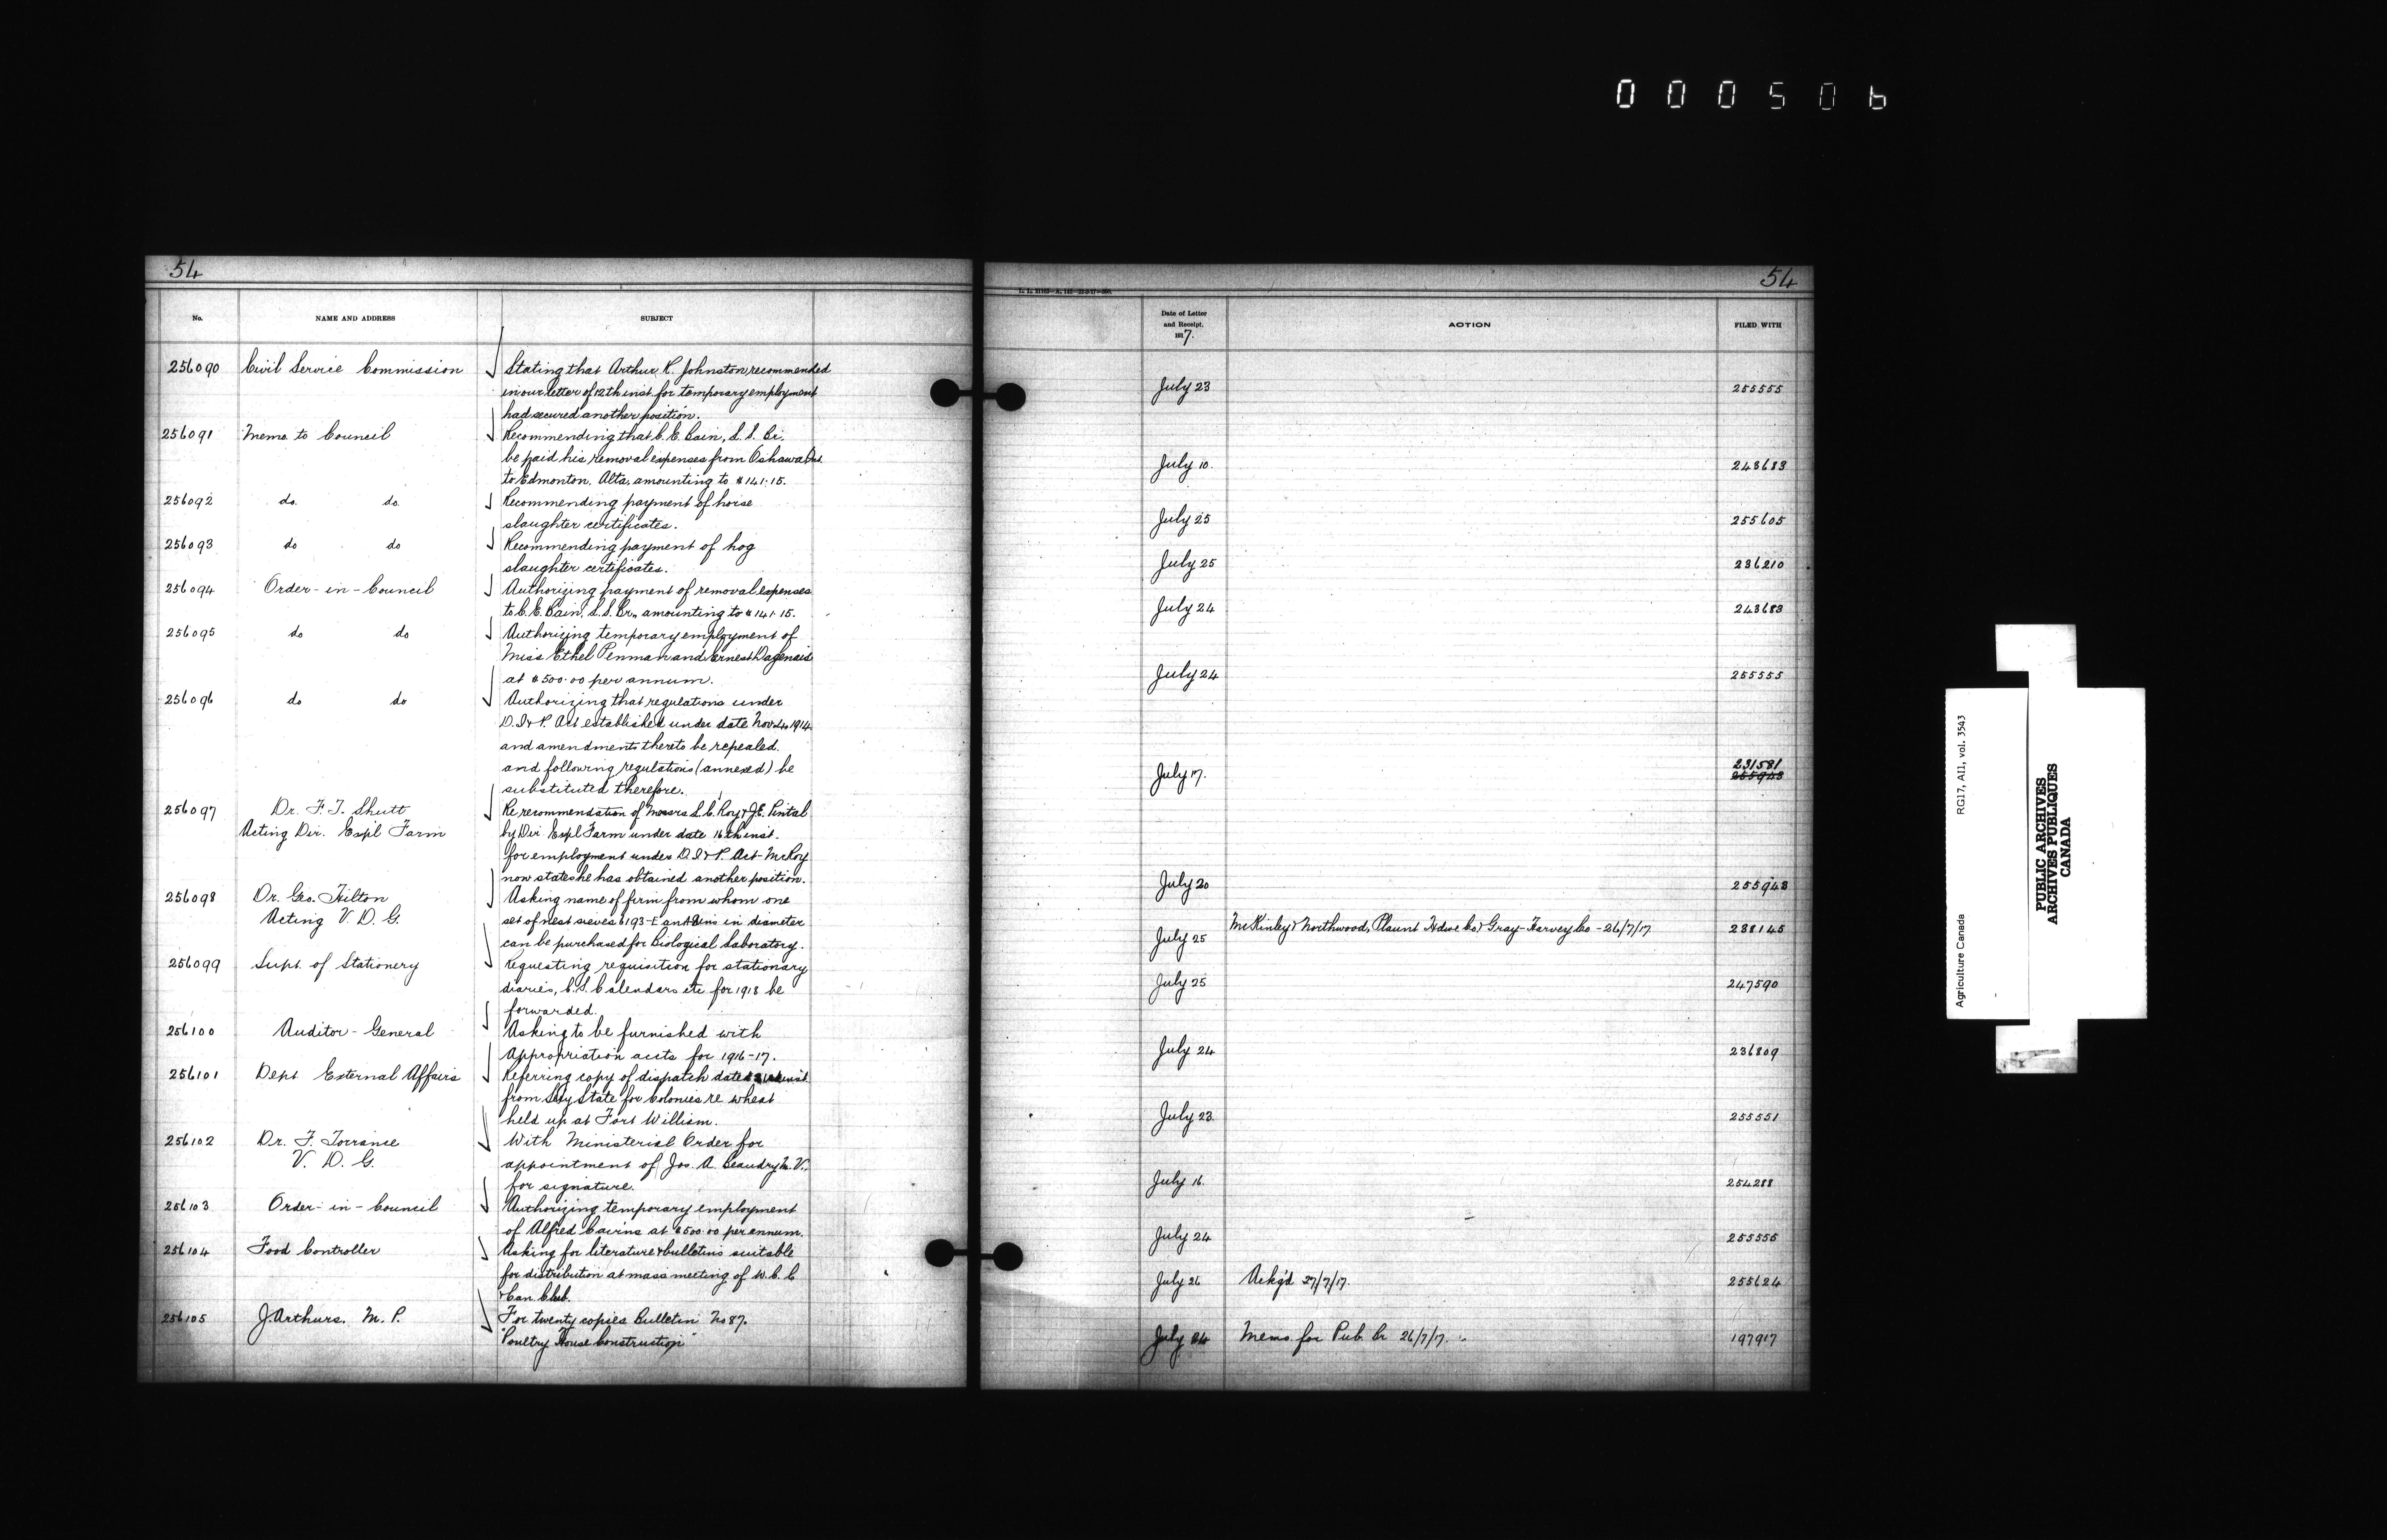 000506
54
No.
NAME AND ADDRESS
SUBJECT
256090 Civil Service Commission Stating that Arthur R. Johnston recommended
in our letter of 12th inst. for temporary employment
had secured another position.
256091 Memo. to Council Recommending that C. E. Bain, L. S. Br.
be paid his removal expenses from Oshawa Ont
to Edmonton, Alta, amounting to $141.15.
256092 do. do. Recommending payment of horse
slaughter certificates.
256093 do do Recommending payment of hog
slaughter certificates.
256094 Order-in-Council Authorizing payment of removal expenses
to C. E. Bain, L. S. Br., amounting to $141.15.
256095 do do Authorizing temporary employment of
Miss Ethel Penman and Ernest Dagenais
at $500.00 per annum.
256096 do do Authorizing that regulations under
D. I & P. Act established under date Nov. 4, 1914
and amendments thereto be repealed.
and following regulations (annexed) be
substituted therefore.
256097 Dr. F. T. Shutt Re recommendation of Messrs L. C. Roy & J. E. Pintal
Acting Dir. Expl Farm by Dir Expl Farm under date 16th inst.
for employment under D. I & P. Act - Mr Roy
now states he has obtained another position.
256098 Dr. Geo. Hilton Asking name of firm from whom one
Acting V. D. G. set of nest sieves 6193-E and 8 ins in diameter
can be purchased for Biological Laboratory.
256099 Supt. of Stationery Requesting requisition for stationary
diaries, C. S. Calendars etc for 1918 be
forwarded.
256100 Auditor-General Asking to be furnished with
Appropriation accts for 1916-17.
256101 Dept External Affairs Referring copy of dispatch dated inst
from Secy State for Colonies re wheat
held up at Fort William.
256102 Dr. F. Torrance With Ministerial Order for
V. D. G. appointment of Jos. A. Beaudry M. V.
for signature.
256103 Order-in-Council Authorizing temporary employment
of Alfred Cairns at $500.00 per annum.
256104 Food Controller Asking for literature & bulletins suitable
for distribution at mass meeting of W. C. C
& Can. Club.
256105 J. Arthurs. M. P. For twenty copies Bulletin No 87.
"Poultry House Construction"
54
Date of Letter
and Receipt.
1917.
ACTION
FILED WITH
July 23 255555
July 10. 243683
July 25 255605
July 25 236210
July 24 243683
July 24 255555
231581
July 17. 255943
July 20 255943
July 25 McKinley & Northwood, Plaunt Hdwe Co. & Gray-Harvey Co - 26/7/17 238145
July 25 247590
July 24 236809
July 23 255551
July 16 254288
July 24 255555
July 26 Ackg'd 27/7/17. 255624
July 24 Memo. for Pub. Br 26/7/17. 197917
Agriculture Canada RG17, A11, vol. 3543
PUBLIC ARCHIVES
ARCHIVES PUBLIQUES
CANADA